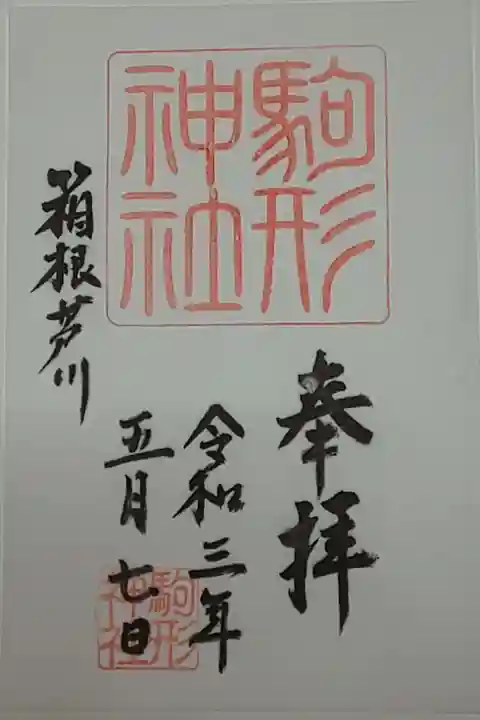 駒形
神社
奉拝
令和三年
五月七日
箱根芦川
駒形
神社